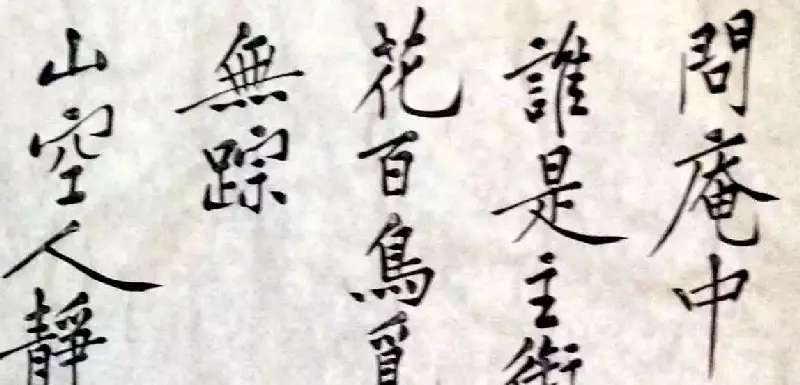 問庵中
誰是主銜
花百鳥覓
無踪
山空人靜